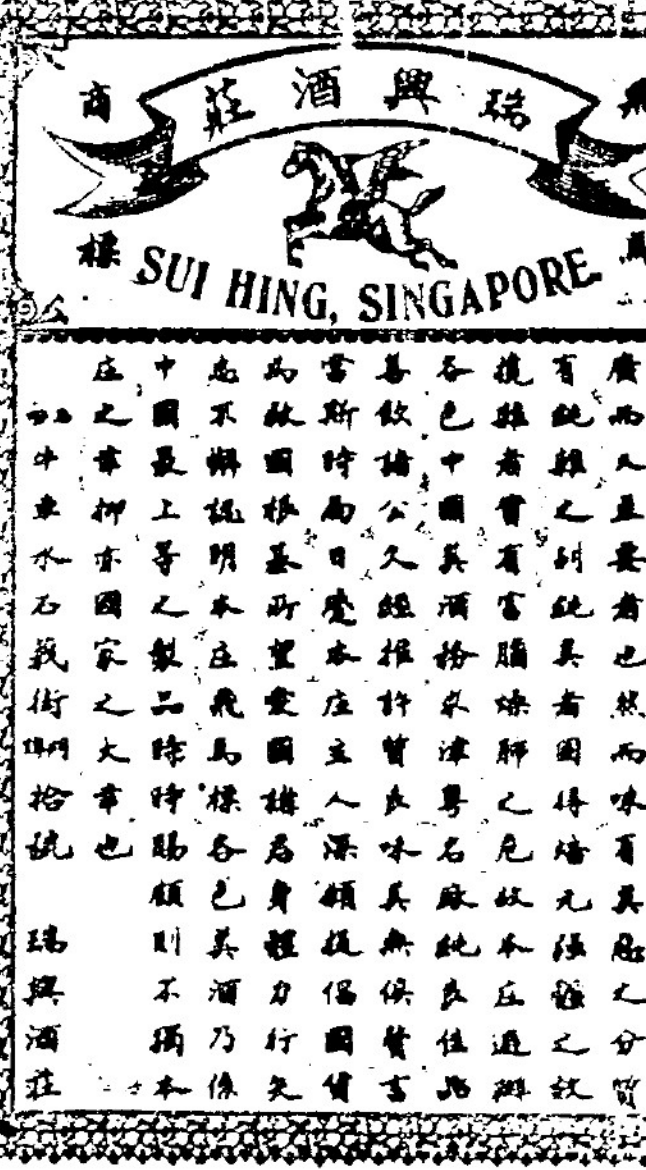 瑞興酒莊
飛馬
商標
SUI HING, SINGAPORE.
廣而又要者也然而味有美之分質
有純雜之別純美者固得焙元強之效
雜者實有富腦燥肺之危故本庄遊
各色中國美酒務求津粵名純良佳品
善飲諸公久經推許質良味美無俟贅言
當斯時局日本庄主人深願提倡國貨
為救國根基所望愛國諸君身體力行矢
志不懈認明本庄飛馬標各色美酒乃係
中國最上等之製品除時賜顧則不獨本
庄之幸抑亦國家之大幸也
牛車水石街門牌拾號 瑞興酒莊